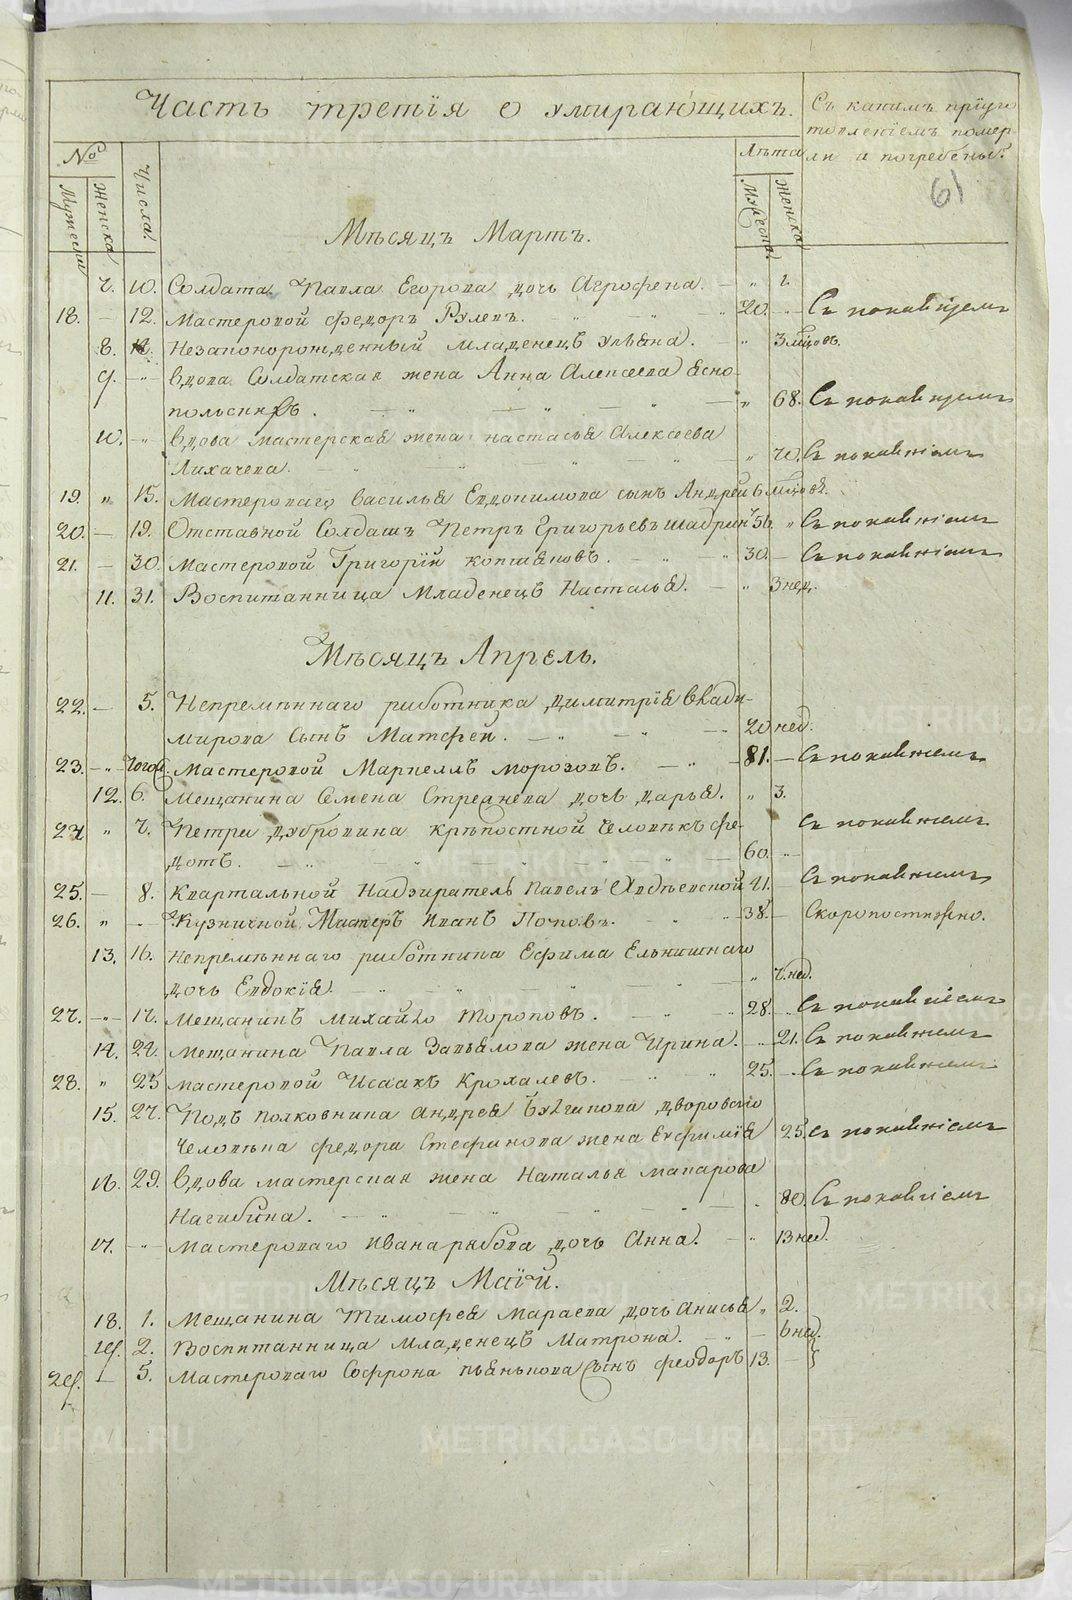 Часть третїя о умирающихъ.
Съ какимъ прїуго
товленїемъ помер-
ли и погребены?
№
Мужеска
Женска
Числа
Лѣта
Мужеска
Женска
61
Мѣсяцъ Мартъ.
7. 10. Солдата Павла Егорова дочь Агрофена. — „ 1.
18. — 12. Мастеровой Федоръ Рулевъ. 20. Съ покаянїемъ
8. Незаконорожденный младенецъ Ульяна. — „ 3 мцовъ.
9. —„— Вдова Солдатская жена Анна Алексеева Ясно-
польскихъ. „ 68. Съ покаянїемъ
10. —„— Вдова мастерская жена настасья Алексеева
Лихачева. „ 70. Съ покаянїемъ
19. „ 15. Мастероваго Василья Евдокимова сынъ Андрей 6 мцовъ.
20. — 19. Отставной Солдатъ Петръ Григорьевъ шадринъ 56. „ Съ покаянїемъ
21. — 30. Мастеровой Григорїй коптяковъ. 30. — Съ покаянїемъ
11. 31. Воспитанница Младенецъ Насталья. — „ 3 нед.
Мѣсяцъ Апрель.
22. — 5. Непремѣннаго работника димитрїя влади-
мирова Сынъ Матфей. 20 нед.
23. —„— Тогож. Мастеровой Маркеллъ морозовъ. 81. — Съ покаянїемъ
12. 6. Мещанина Семена Стрежнева дочь дарья. „ 3.
24 „ 7. Петра дубровина крѣпостной Человѣкъ фе- Съ покаянїемъ
дотъ. 60. „
25. — 8. Квартальной Надзиратель Павелъ Авдѣевской 41. — Съ покаянїемъ
26. „ — Кузничной Мастеръ Иванъ Поповъ. 38. — Скоропостижно.
13. 16. Непремѣннаго работника Ефима Елькишнаго
дочь Евдокїя. „ 7. нед.
27. —„— 17. Мещанинъ михайло Тороповъ. 28. „ Съ покаянїемъ
14. 24. Мещанина Павла Завьялова жена Ирина. „ 21. Съ покаянїемъ
28. „ 25 мастеровой Исаакъ Крохалевъ. 25. — Съ покаянїемъ
15. 27. Подъ полковника андрея дворового
Человѣка федора Стефанова жена Евфимїя 25. Съ покаянїемъ
16. 29. Вдова мастерская жена Наталья макарова
Нагибина. 80. Съ покаянїемъ
17. —„— Мастероваго Ивана рябова дочь Анна. — „ 13 нед.
Мѣсяцъ Маїй.
18. 1. Мещанина Тимофея Мараева дочь Анисья „ 2.
19. 2. Воспитанница младенецъ Матрона. 6 нед.
29. — 5. Мастероваго Софрона пьянькова Сынъ феодоръ 13. —